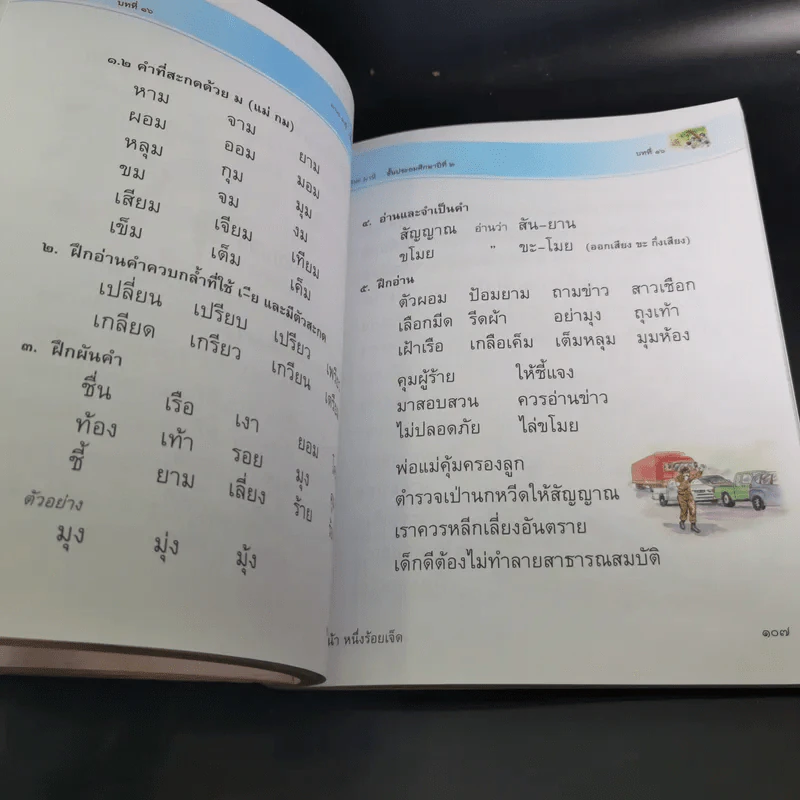 บทที่ ๑๖
๑.๒ คำที่สะกดด้วย ม (แม่ กม)
หาม จาม ยาม
ผอม ออม มอม
หลุม กุม มุม
ขม จม งม
เสียม เจียม เทียม
เข็ม เต็ม เค็ม
๒. ฝึกอ่านคำควบกล้ำที่ใช้ เ-ีย และมีตัวสะกด
เปลี่ยน เปรียบ เปรียว
เกลียด เกรียว เกวียน
๓. ฝึกผันคำ
ชื่น เรือ เงา ยอม
ท้อง เท้า รอย มุง
ชี้ ยาม เลี่ยง ร้าย
ตัวอย่าง
มุง มุ่ง มุ้ง
ชั้นประถมศึกษาปีที่ ๒ บทที่ ๑๖
๔. อ่านและจำเป็นคำ
สัญญาณ อ่านว่า สัน-ยาน
ขโมย " ขะ-โมย (ออกเสียง ขะ กึ่งเสียง)
๕. ฝึกอ่าน
ตัวผอม ป้อมยาม ถามข่าว สาวเชือก
เลือกมีด รีดผ้า อย่ามุง ถุงเท้า
เฝ้าเรือ เกลือเค็ม เต็มหลุม มุมห้อง
คุมผู้ร้าย ให้ชี้แจง
มาสอบสวน ควรอ่านข่าว
ไม่ปลอดภัย ไล่ขโมย
พ่อแม่คุ้มครองลูก
ตำรวจเป่านกหวีดให้สัญญาณ
เราควรหลีกเลี่ยงอันตราย
เด็กดีต้องไม่ทำลายสาธารณสมบัติ
หน้า หนึ่งร้อยเจ็ด ๑๐๗